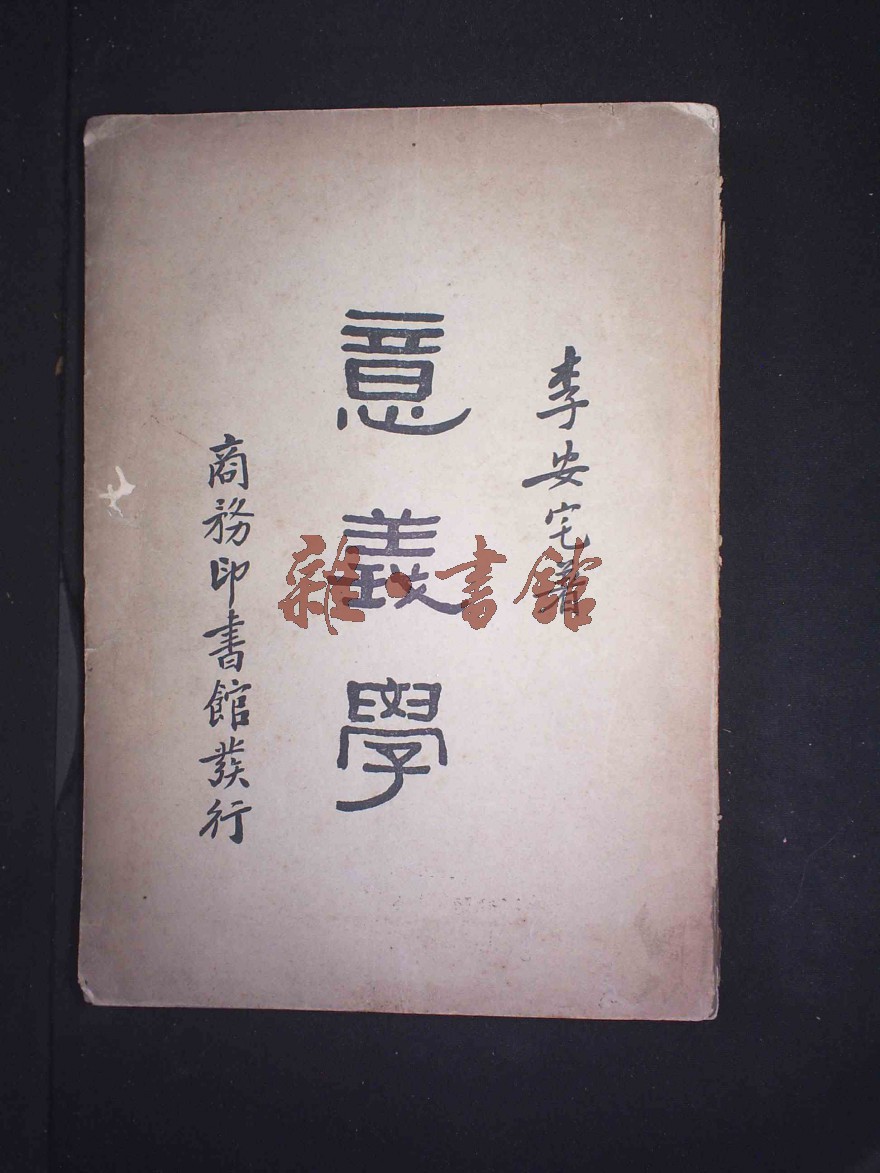 李安宅著
意義學
商務印書館發行
雜·書館